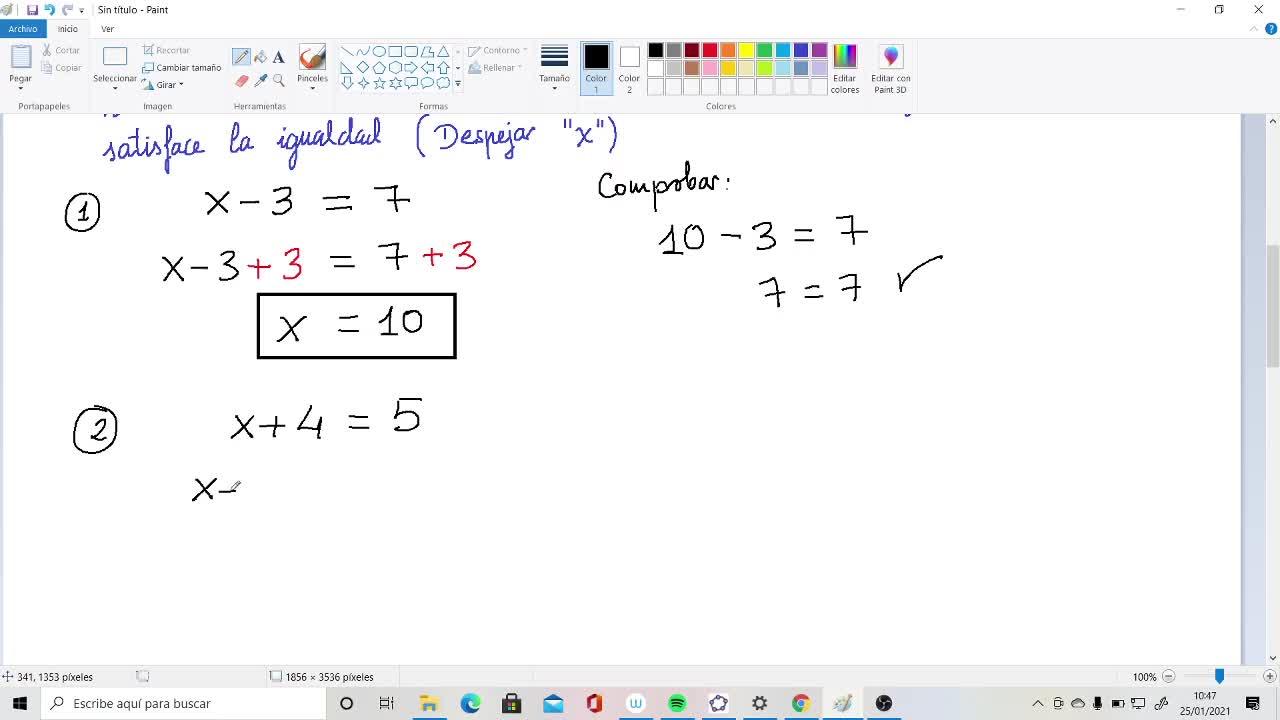 Sin título - Paint
Archivo Inicio Ver
Pegar Cortar Copiar Portapapeles
Seleccionar Recortar Cambiar tamaño Girar Imagen
Herramientas
Pinceles
Formas Contorno Rellenar
Tamaño
Color 1 Color 2 Colores
Editar colores
Editar con Paint 3D
satisface la igualdad (Despejar "x")
1 x - 3 = 7
x - 3 + 3 = 7 + 3
x = 10
Comprobar:
10 - 3 = 7
7 = 7 ✓
2 x + 4 = 5
x -
341, 1353 píxeles 1856 × 3536 píxeles 100%
Escribe aquí para buscar
10:47
25/01/2021